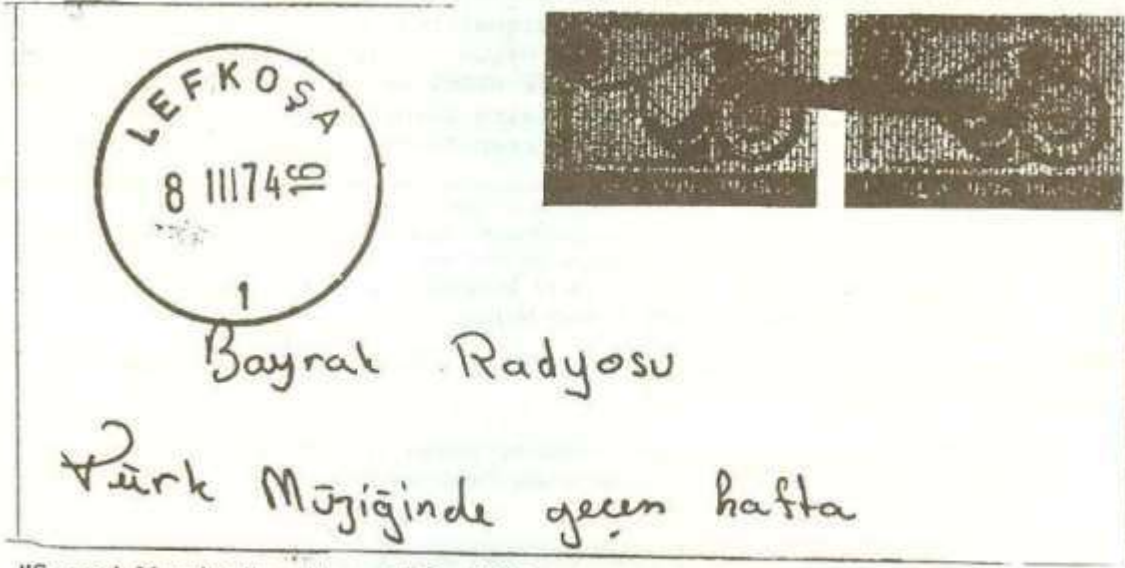 LEFKOŞA
8 III74 16
1
Bayrak Radyosu
Türk Müziğinde geçen hafta